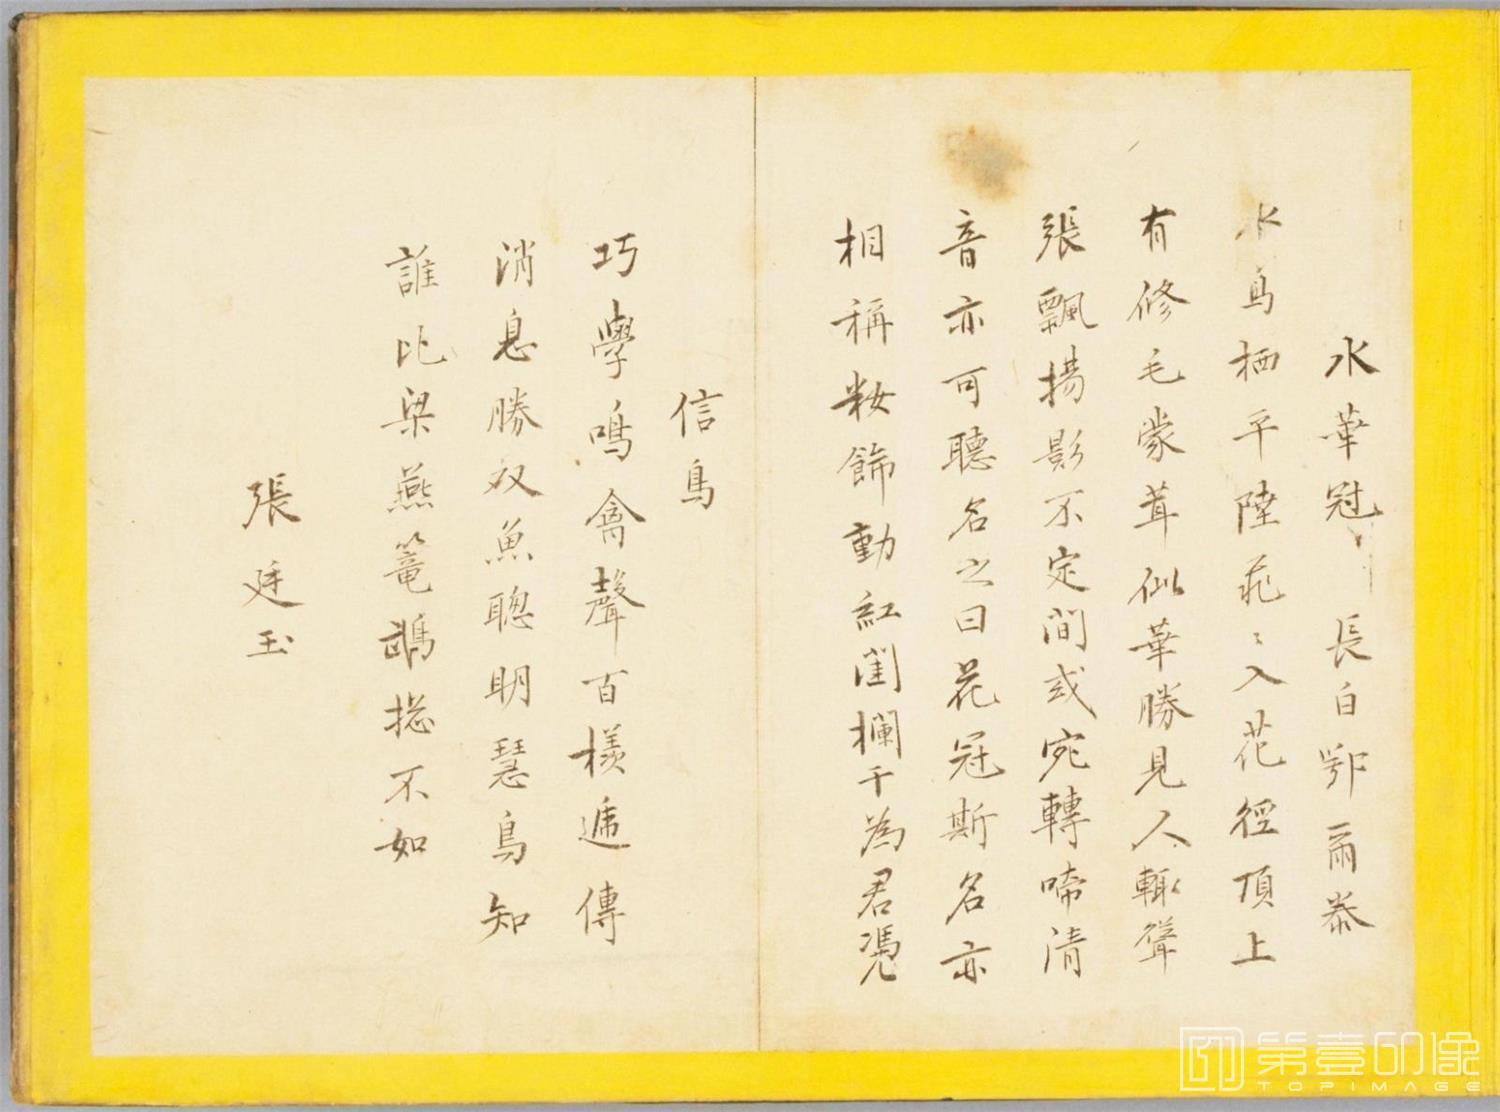 水華冠 長白鄂爾泰
水鳥栖平陸飛〻入花徑頂上
有修毛蒙茸似華勝見人輒聳
張飄揚影不定間或宛轉啼清
音亦可聽名之曰花冠斯名亦
相稱妝飾動紅閨欄干為君凭
信鳥
巧學鳴禽聲百樣遞傳
消息勝双魚聰明慧鳥知
誰比梁燕籠鵡揔不如
張廷玉
第壹印像
TOPIMAGE